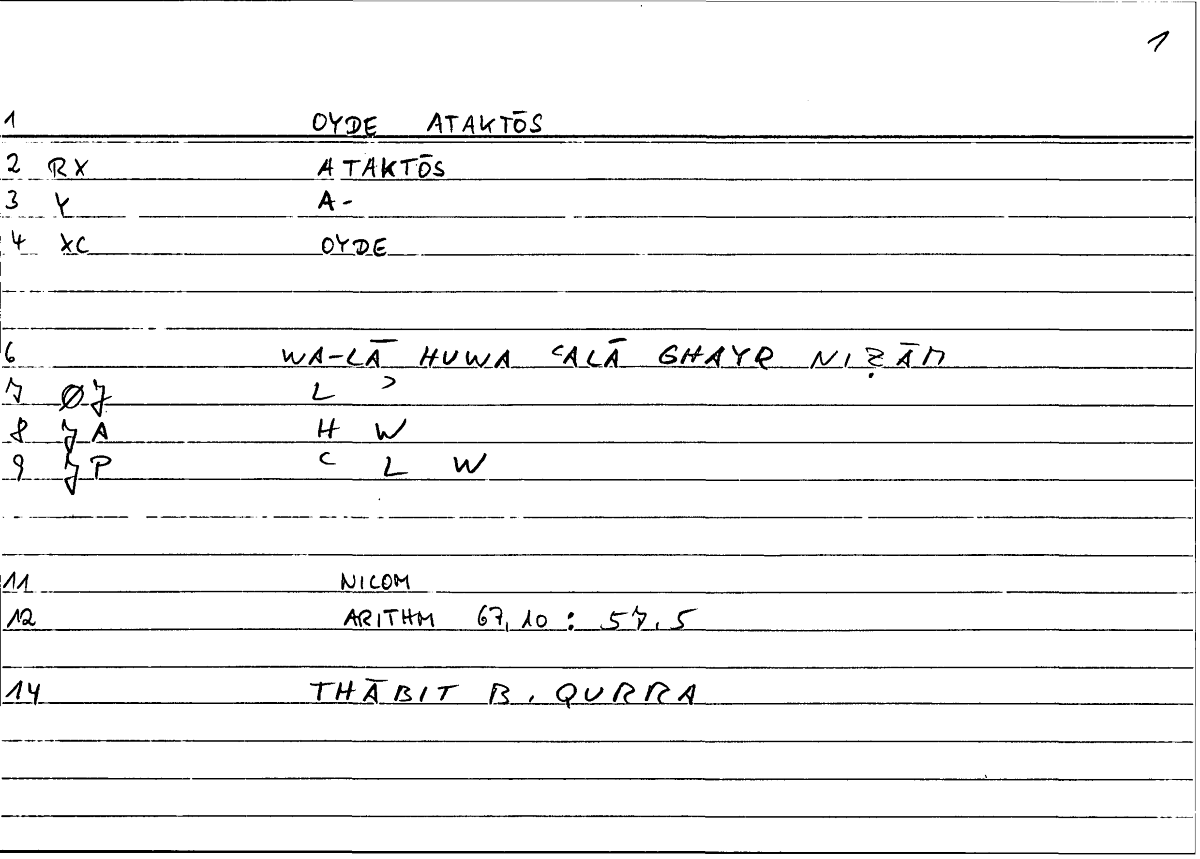 1
1 OYDE ATAKTŌS
2 RX ATAKTŌS
3 Y A-
4 XC OYDE
6 WA-LĀ HUWA ʿALĀ GHAYR NIẒĀM
7 Ø7 L ʾ
8 7A H W
9 7P ʿ L W
11 NICOM
12 ARITHM 67,10 : 57.5
14 THĀBIT B. QURRA